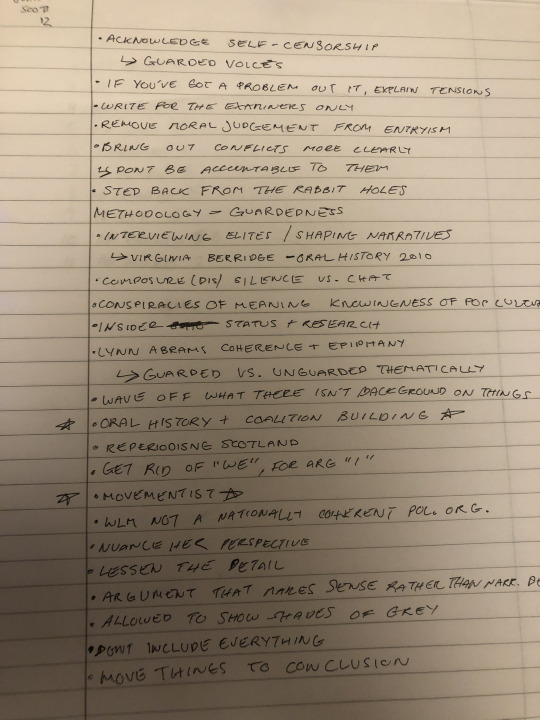 12
• ACKNOWLEDGE SELF-CENSORSHIP
↳ GUARDED VOICES
• IF YOU'VE GOT A PROBLEM OUT IT, EXPLAIN TENSIONS
• WRITE FOR THE EXAMINERS ONLY
• REMOVE MORAL JUDGEMENT FROM ENTRYISM
• BRING OUT CONFLICTS MORE CLEARLY
↳ DONT BE ACCOUNTABLE TO THEM
• STED BACK FROM THE RABBIT HOLES
METHODOLOGY – GUARDEDNESS
• INTERVIEWING ELITES / SHAPING NARRATIVES
↳ VIRGINIA BERRIDGE – ORAL HISTORY 2010
• COMPOSURE (DIS/ SILENCE VS. CHAT
• CONSPIRACIES OF MEANING KNOWINGNESS OF POP
• INSIDER STATUS + RESEARCH
• LYNN ABRAMS COHERENCE + EPIPHANY
↳ GUARDED VS. UNGUARDED THEMATICALLY
• WAVE OFF WHAT THERE ISN'T BACKGROUND ON THINGS
☆ • ORAL HISTORY + COALITION BUILDING ☆
• REPERIODISNG SCOTLAND
• GET RID OF "WE", FOR ARG "I"
☆ • MOVEMENTIST ☆
• WLM NOT A NATIONALLY COHERENT POL. ORG.
• NUANCE HER PERSPECTIVE
• LESSEN THE DETAIL
• ARGUMENT THAT MAKES SENSE RATHER THAN NARR.
• ALLOWED TO SHOW SHADES OF GREY
• DONT INCLUDE EVERYTHING
• MOVE THINGS TO CONCLUSION